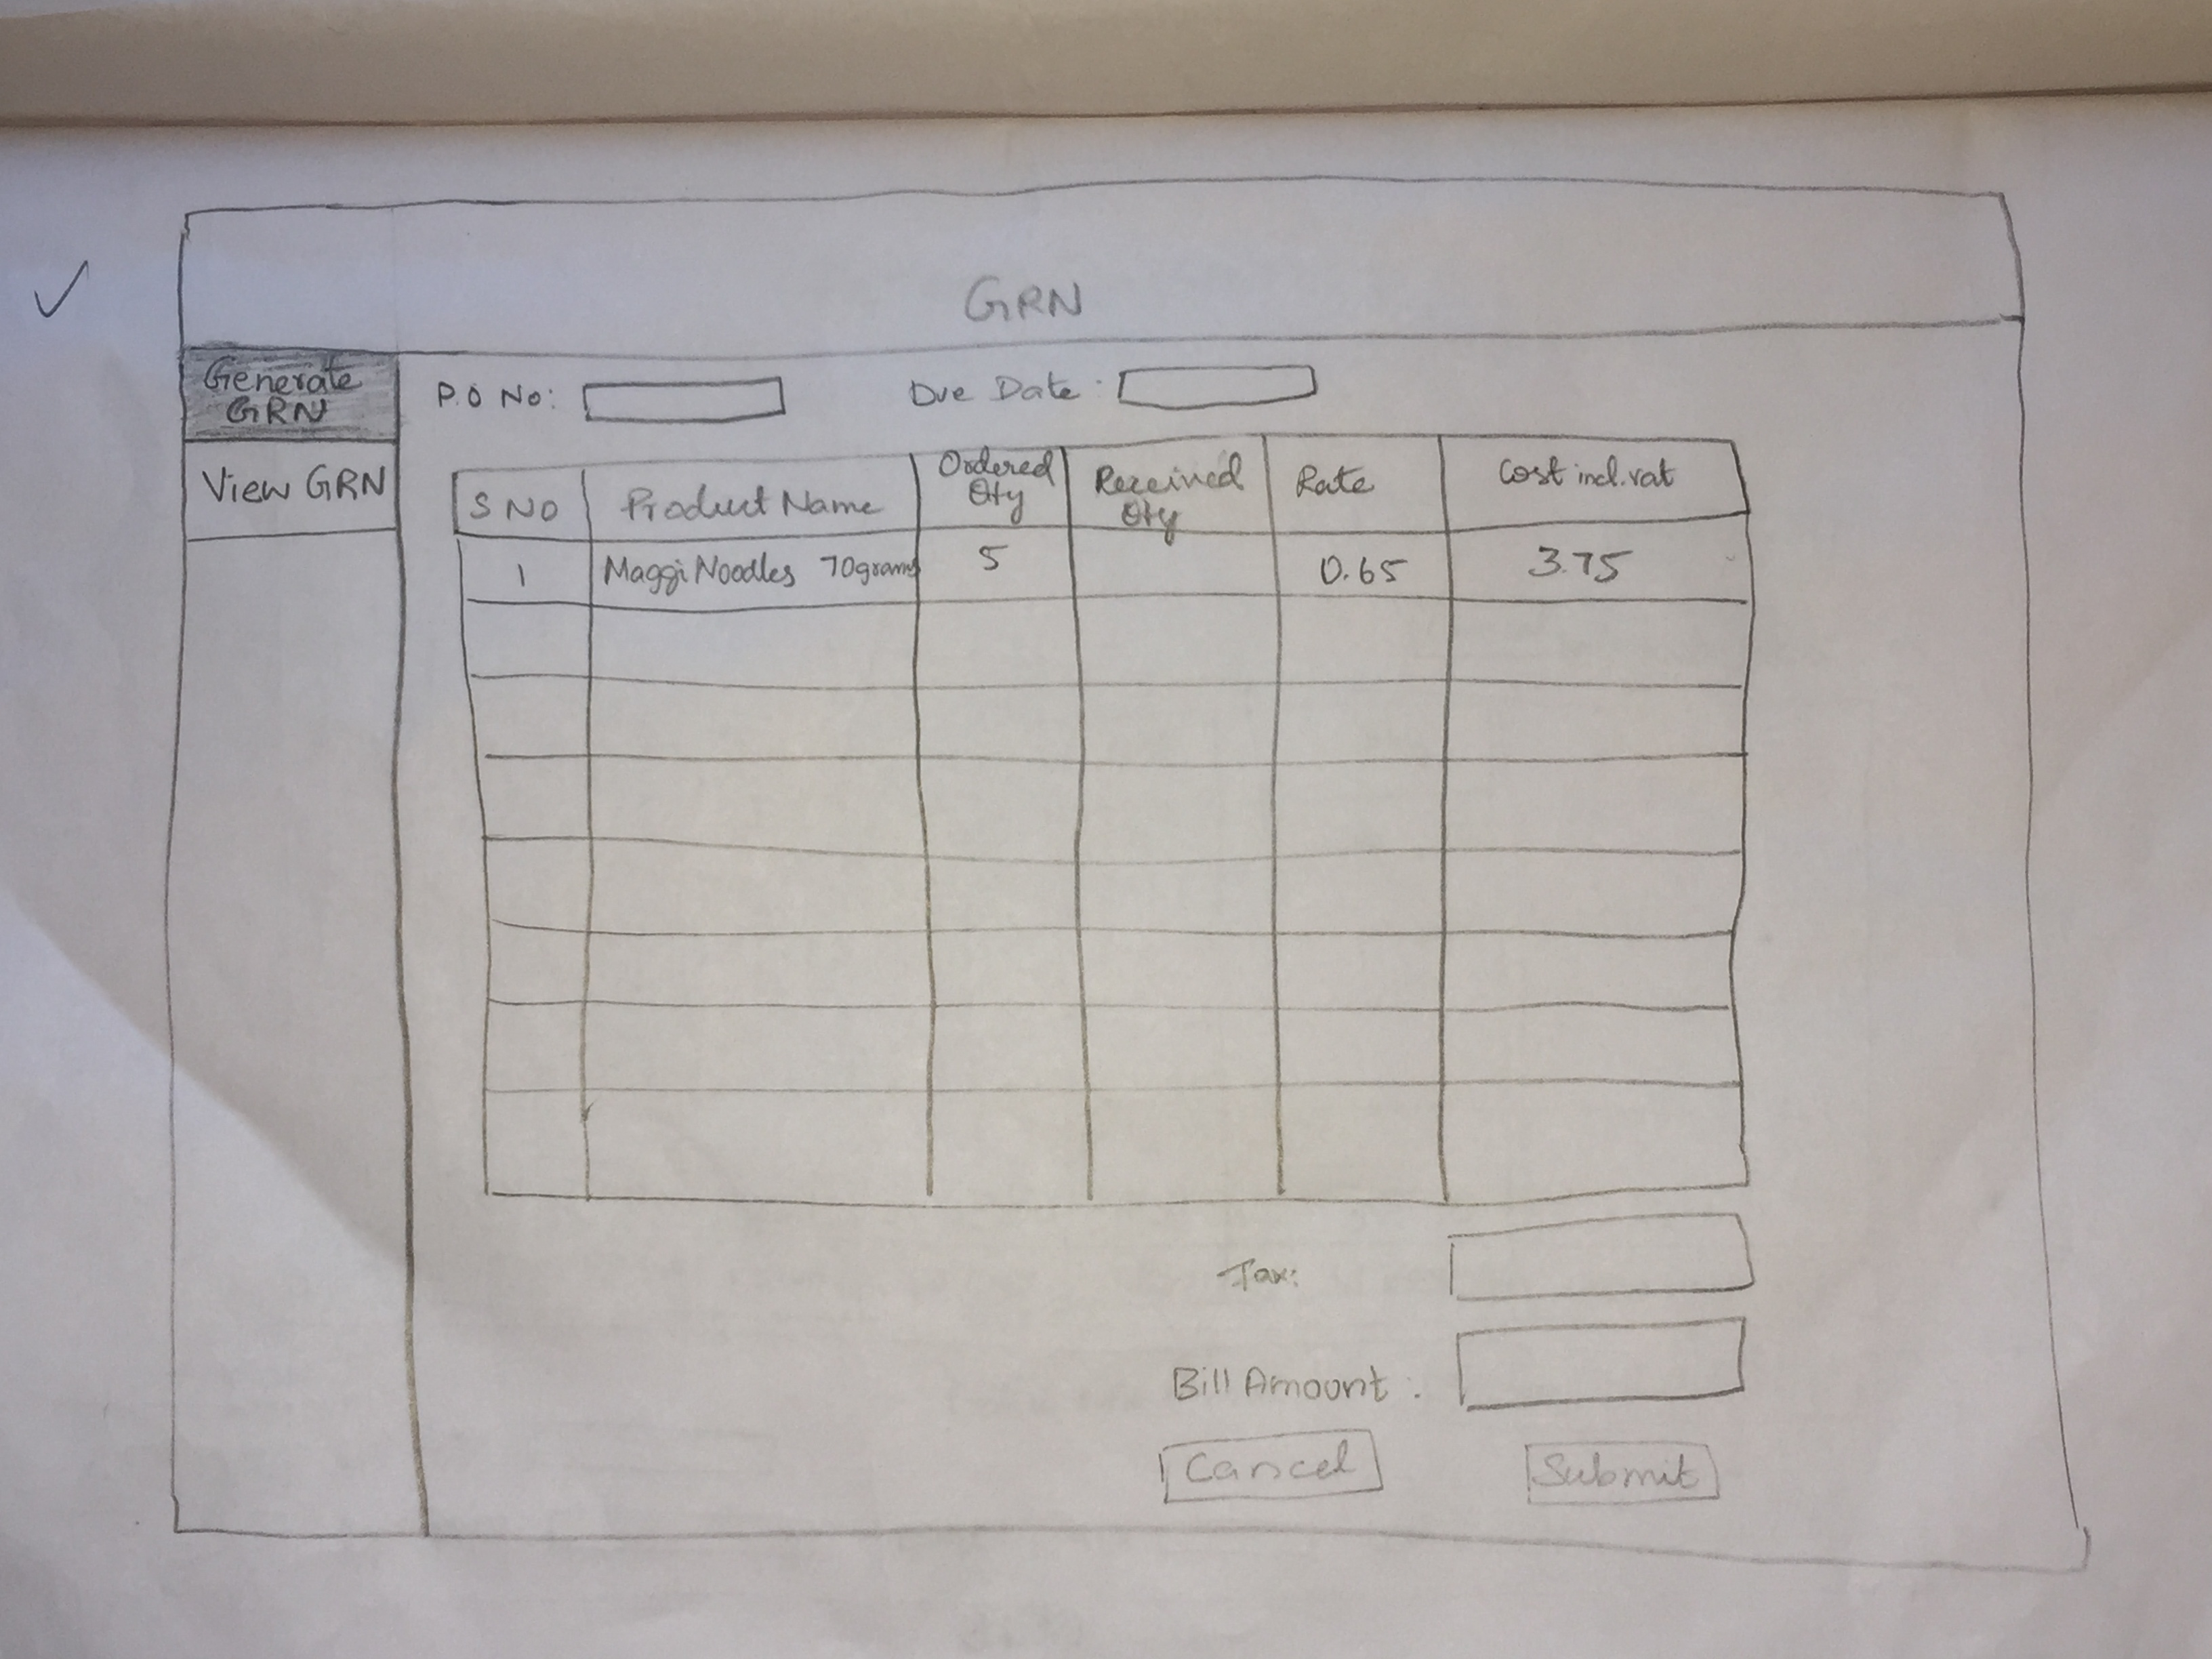 GRN
Generate
GRN
View GRN
P.O No:
Due Date :
S NO
Product Name
Ordered
Qty
Received
Qty
Rate
Cost incl.vat
1
Maggi Noodles 70grams
5
0.65
3.75
Tax:
Bill Amount :
Cancel
Submit